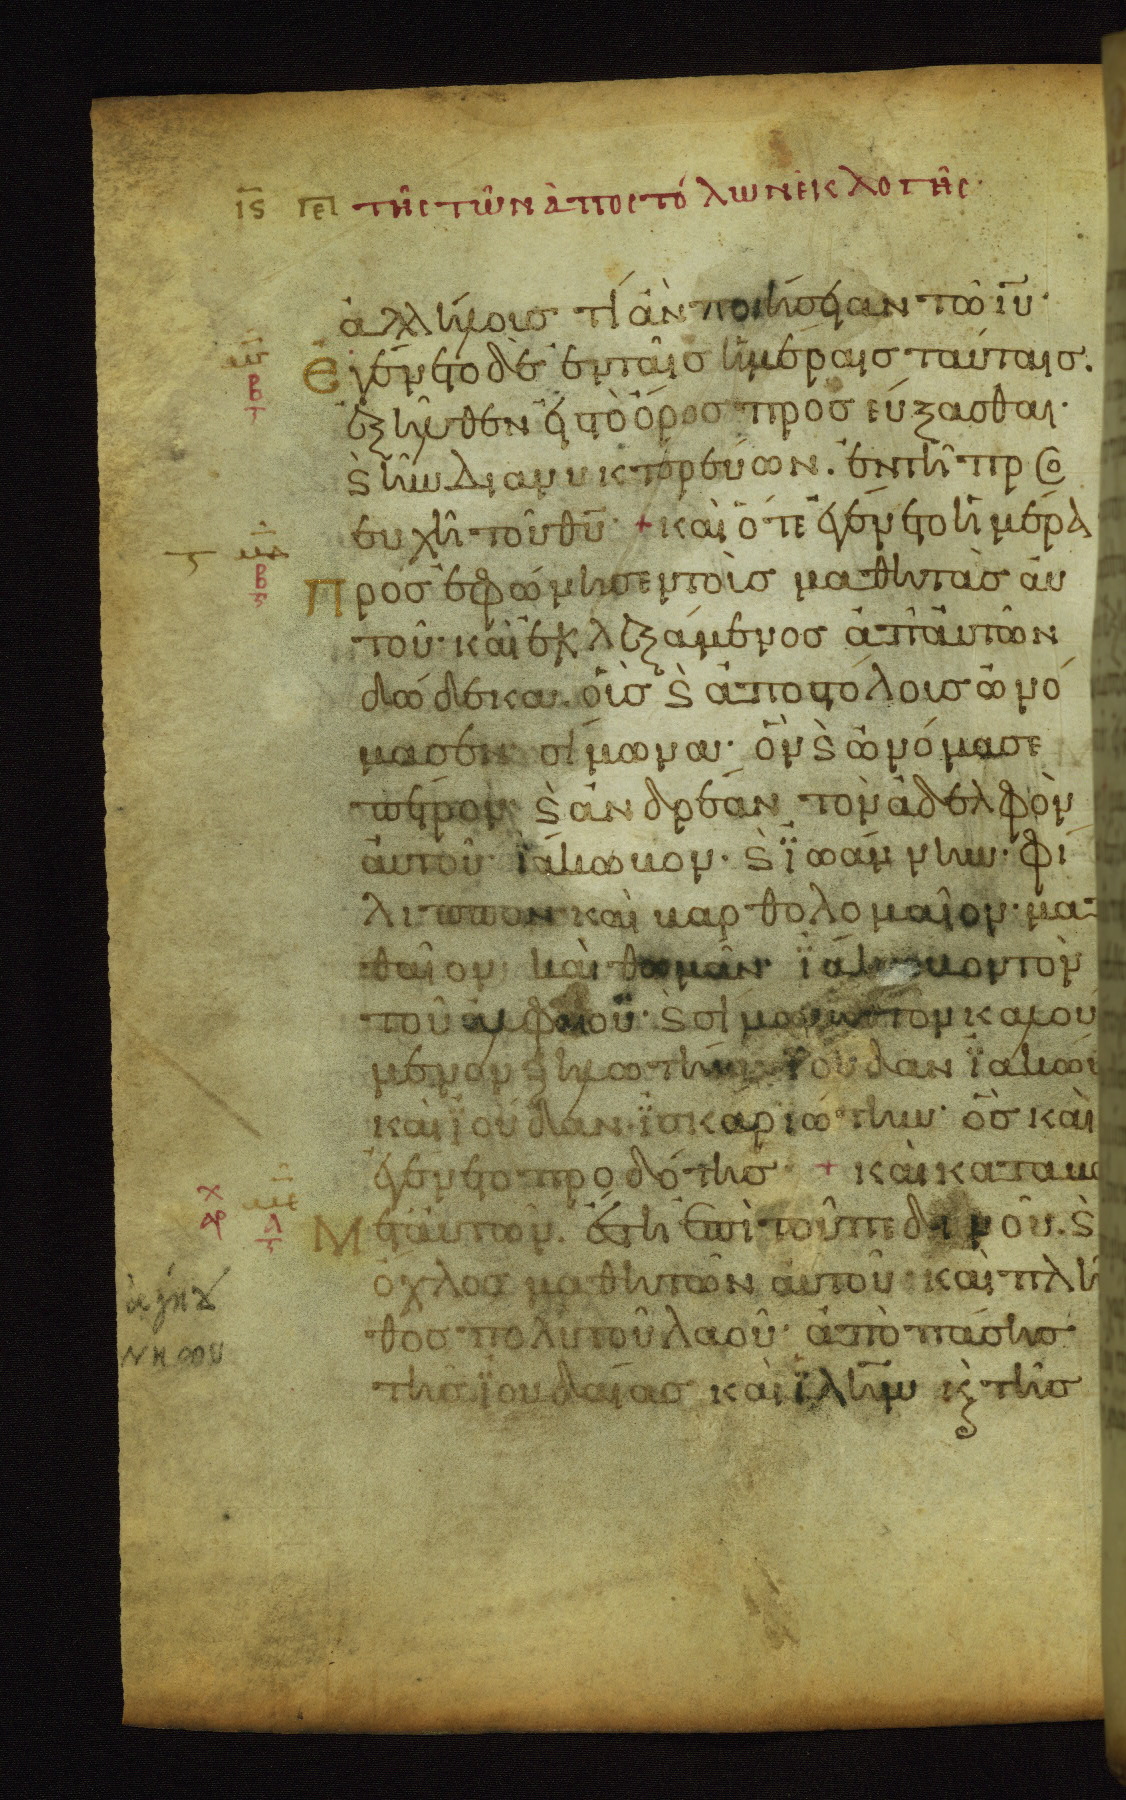 ιϛ πε τῆς τῶν ἀποστόλων ἐκλογῆς
ἀλλήλοις τί ἂν ποιήσειαν τῶ ιυ·
Ἐγένετο δὲ ἐν ταῖς ἡμέραις ταύταις.
ἐξῆλθεν εἰς τὸ ὄρος προσεύξασθαι·
ϛ ἦν διανυκτορεύων. ἐν τῆ προσ
ευχῆ τοῦ θυ + καὶ ὅτε ἐγένετο ἡμέρα
Προσεφώνησεν τοὶς μαθητὰς αὐ
τοῦ· καὶ ἐκλεξάμενος ἀπ' αὐτῶν
δώδεκα. οἷς ϛ ἀποστόλοις ὠνό
μασεν· σίμωνα· ὃν ϛ ὠνόμασε
πέτρον· ϛ ἀνδρέαν τὸν ἀδελφὸν
αὐτοῦ ϊάκωβον· ϛ ϊωάννην· φί
λιππον καὶ βαρθολομαῖον· μα
θαῖον καὶ θωμᾶν· ϊάκωβον τὸν
τοῦ ἀλφαίου· ϛ σίμωνα τὸν καλού
μενον ζηλωτήν· ϊούδαν ϊακώ
καὶ ϊούδαν ϊσκαριώτην· ὃς καὶ
ἐγένετο προδότης + καὶ καταβὰ
Μετ' αὐτῶν. ἔστη ἐπὶ τοῦ πεδινοῦ. ϛ
ὄχλος μαθητῶν αὐτοῦ· καὶ πλῆ
θος πολὺ τοῦ λαοῦ· ἀπὸ πάσης
τῆς ϊουδαίας καὶ ϊλημ κ τῆς